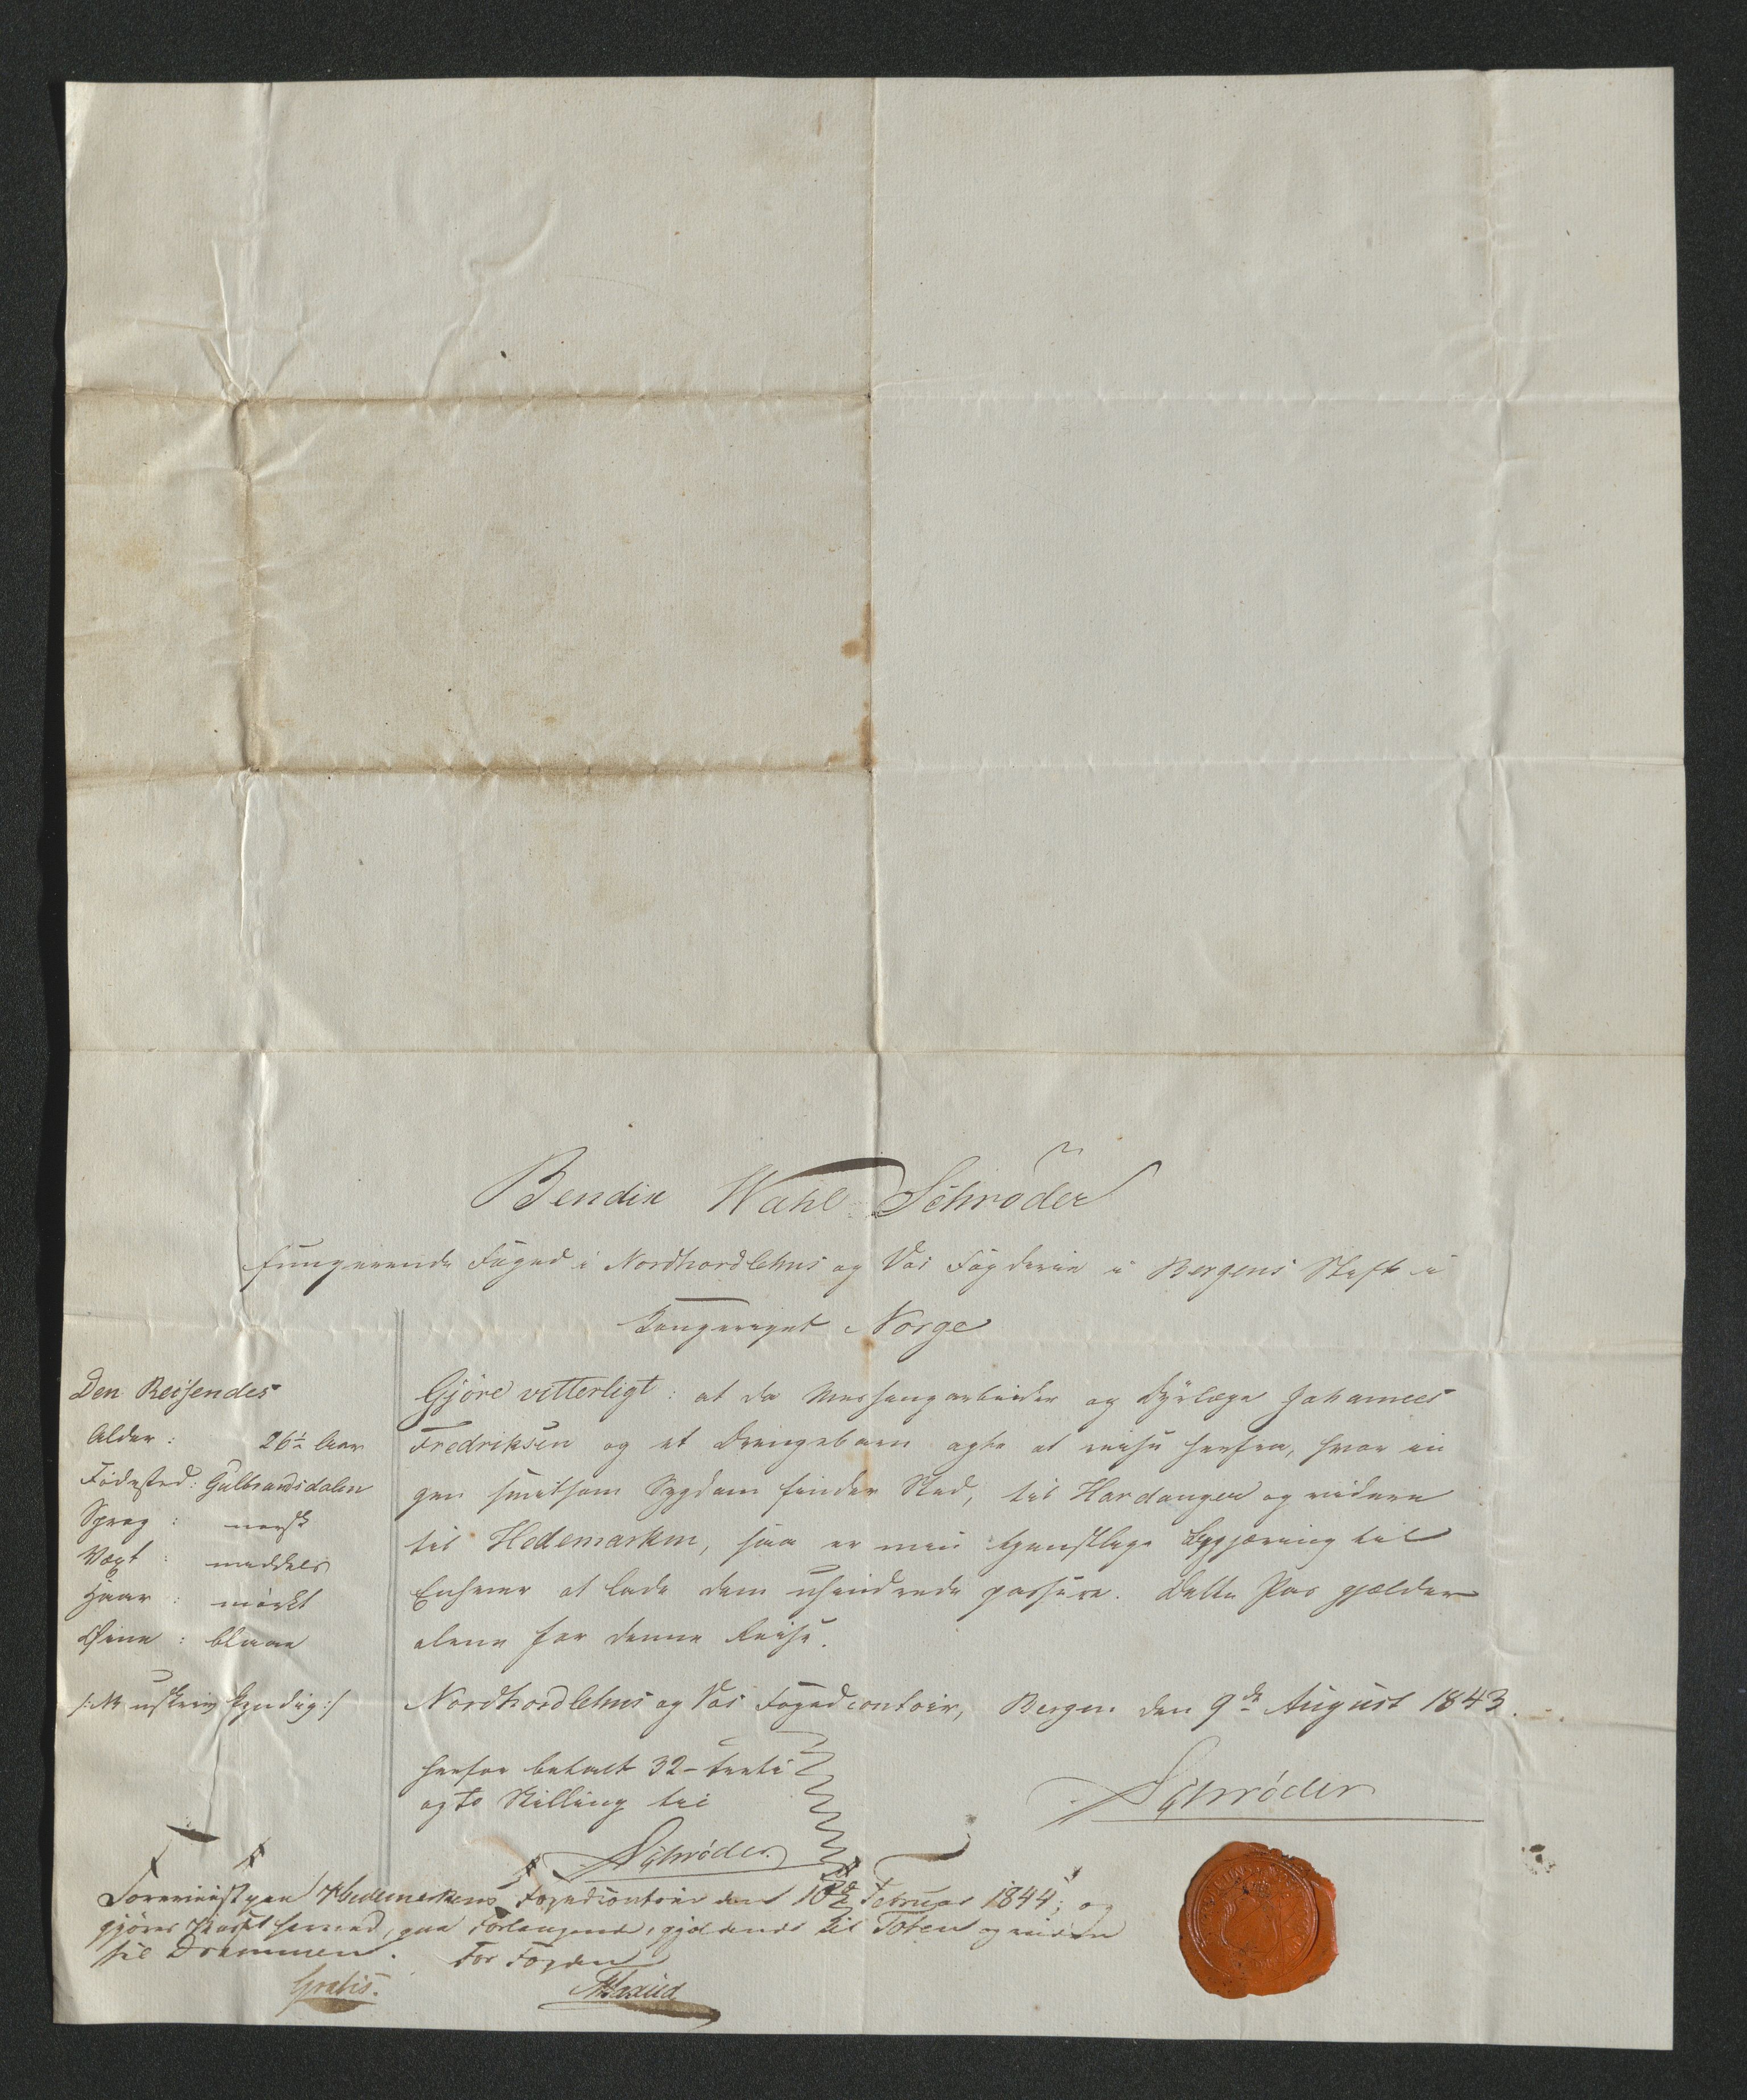 Bendix Wahl Schrøder
fungerende Foged i Nordhordlehns og Vos Fogderie i Bergens Stift i
Kongeriget Norge
Den Reisendes
Alder: 26½ Aar
Fødested: Gulbrandsdalen
Sprog: norsk
Væxt: middels
Haar: mørkt
Øine: blaae
/: NB uskrivkyndig :/
Gjøre vitterligt: at da Messingarbeider og Dyrlæge Johannes
Fredriksen og et Drengebarn agte at reise herfra, hvor in
gen smitsom Sygdom finder Sted, til Hardanger og videre
til Hedemarken, saa er min tjenstlige Begjæring til
Enhver at lade dem uhindrede passere. Dette Pas gjælder
alene for denne Reise.
Nordhordlehns og Vos Fogedcontoir, Bergen den 9de August 1843.
Schrøder
herfor betalt 32 - treti
og to Skilling til
Schrøder
Foreviist paa Hedemarkens Fogedcontoir den 10de Februar 1844; og
gjøres Passet herved, paa Forlangende, gjældende til Toten og videre
til Drammen. For Fogden
Gratis.